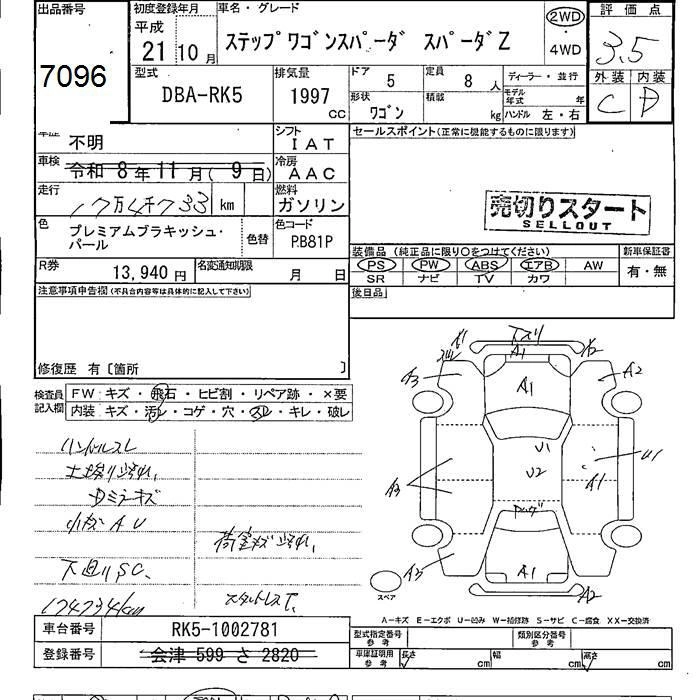 出品番号
7096
初度登録年月
平成
21 10 月
車名・グレード
ステップワゴンスパーダ スパーダZ
2WD
・
4WD
評価点
3.5
外装 内装
C D
型式
DBA-RK5
排気量
1997 cc
ドア
5
定員
8 人
形状
ワゴン
積載
kg
ディーラー・並行
モデル年式 年
ハンドル 左・右
車歴
不明
シフト
IAT
セールスポイント(正常に機能するものに限ります)
車検
令和 8年 11月( 9日)
冷房
AAC
走行
17万4千733 km
燃料
ガソリン
売切りスタート
SELLOUT
色
プレミアムブラキッシュ・パール
色替
色コード
PB81P
R券
13,940 円
名変通知期限
月 日
装備品 (純正品に限り○をつけてください)
PS PW ABS エアB AW
SR ナビ TV カワ
新車保証書
有・無
注意事項申告欄(不具合内容等は具体的に記入して下さい)
後日品
修復歴 有〔箇所 〕
検査員記入欄
FW: キズ・飛石・ヒビ割・リペア跡・×要
内装: キズ・汚レ・コゲ・穴・スレ・キレ・破レ
ハンドルスレ
Dミラーキズ
小キズ A U
下廻りSC、
174734km
スタットレスT、
A1
A2
A3
A2
A1
U1
U2
U1
A1
A3
A3
A1
A2
スペア
A-キズ E-エクボ U-凹み W-補修跡 S-サビ C-腐食 XX-交換済
車台番号
RK5-1002781
登録番号
会津 599 さ 2820
型式指定番号
参考
類別区分番号
参考
車庫証明用
参考
長さ cm
幅 cm
高さ cm